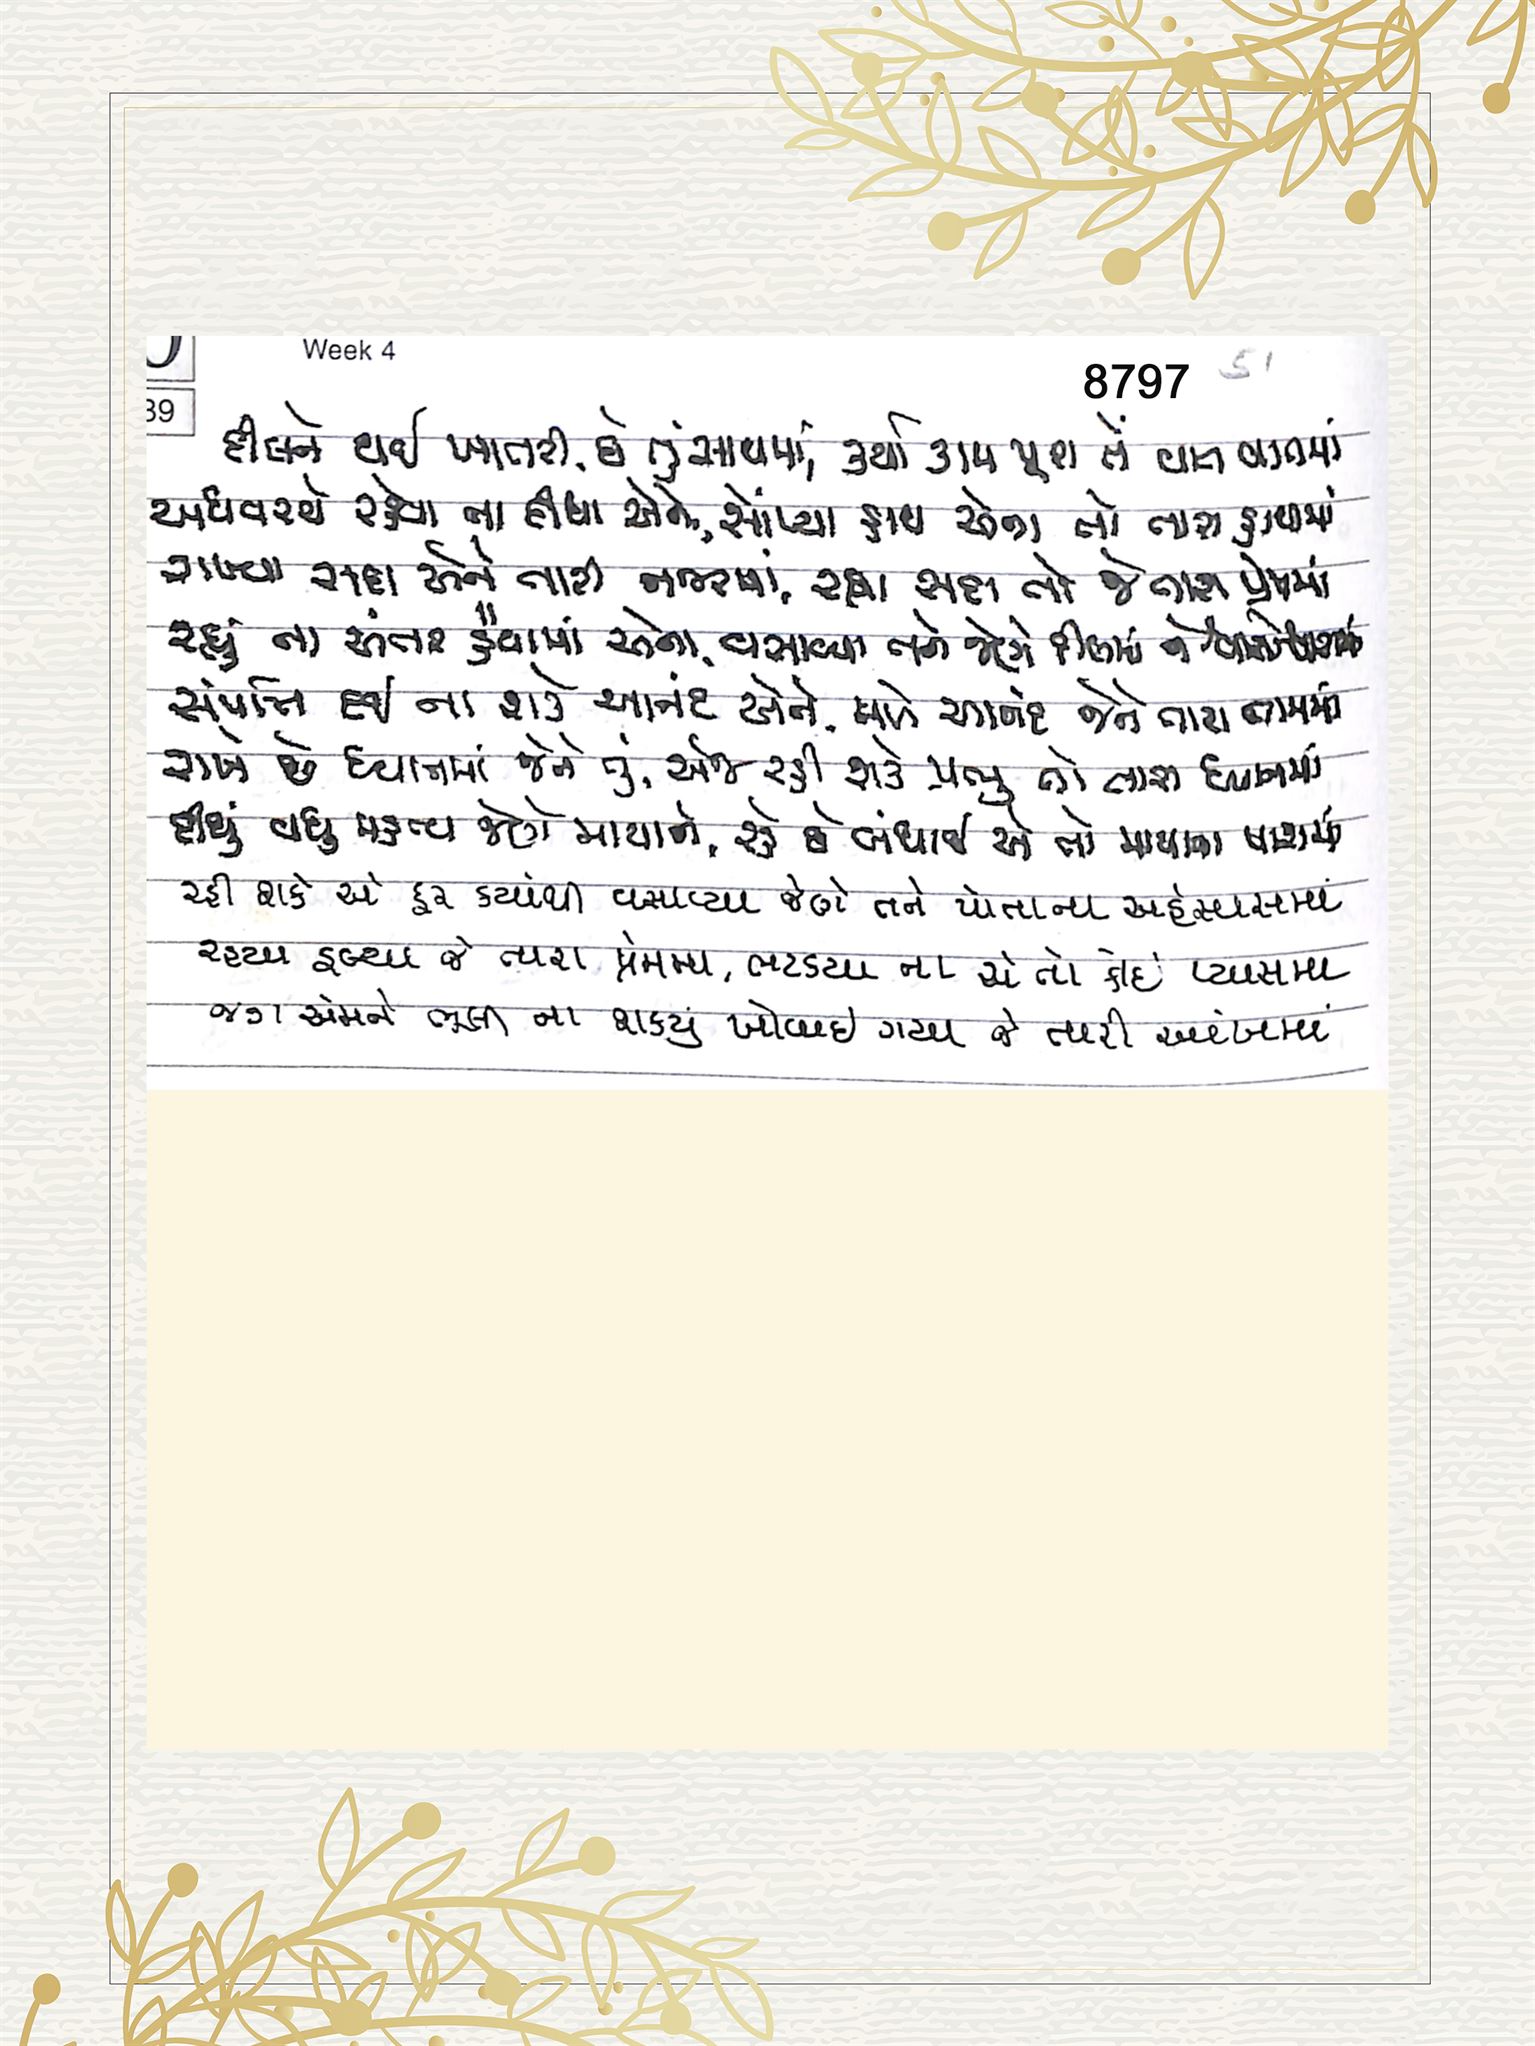 Week 4
8797 51
39
દીલને થઈ ખાતરી, છે તું સાથમાં, કર્યા કામ પૂરા તેં વાત વાતમાં
અધવરચે રહેવા ના દીધા એને, સોંપ્યા હાથ એના તો તારા હાથમાં
રાખ્યા સદા એને તારી નજરમાં, રહ્યા સદા તો જે તારા પ્રેમમાં
રહ્યું ના અંતર હૈયામાં એના, વસાવ્યા તને જેણે દીલમાં ને
સંપત્તિ દઈ ના શકે આનંદ એને, મળે આનંદ જેને તારા નામમાં
રાખે છે ધ્યાનમાં જેને તું, એજ રહી શકે પ્રભુ તો તારા ધ્યાનમાં
દીધું વધુ મહત્વ જેણે માયાને, છે બંધાઈ એ તો માયાના પાશમાં
રહી શકે એ દૂર કયાંથી વસાવ્યા જેણે તને પોતાના અહેસાસમાં
રહયા ડૂબ્યા જે તારા પ્રેમમા, ભટકયા ના એ તો કોઇ પ્યાસમા
જગ એમને ભૂલી ના શકયું ખોવાઇ ગયા જે તારી આંખમાં